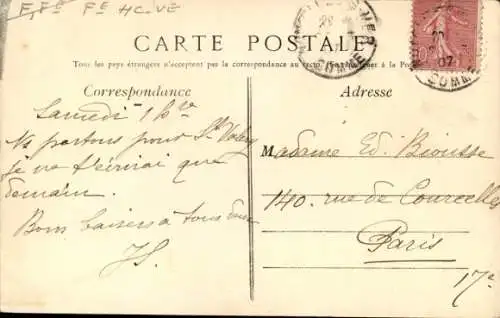 CARTE POSTALE
Tous les pays étrangers n'acceptent pas la correspondance au recto
Correspondance
Adresse
Samedi 1 h
Ns partons pour St Valery
je ne t'écrirai que
demain.
Bons baisers à tous deux
JS.
Madame Ed. Biousse
140. rue de Courcelles
Paris
17e
SOMME
07
SOMME